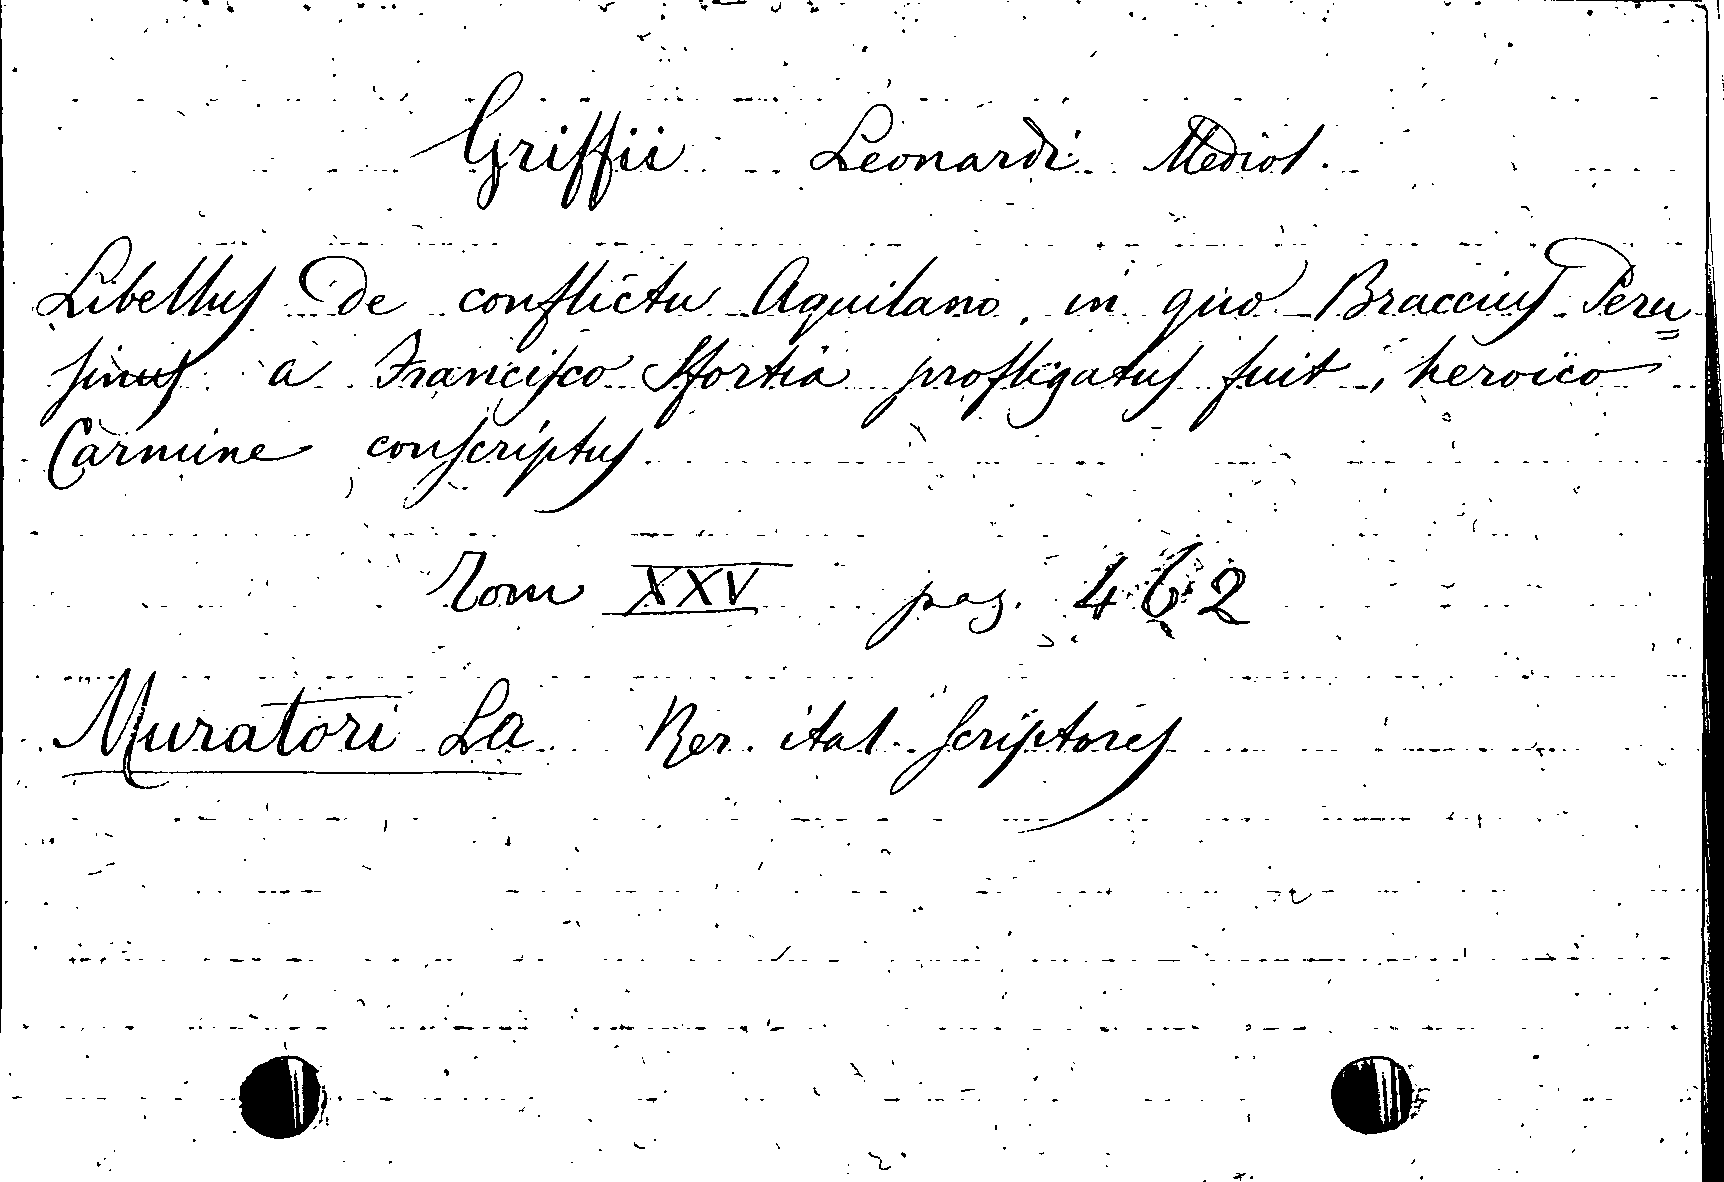 Griffii Leonardi Mediol.
Libellus de conflictu Aquilano, in quo Braccius Peru=
sinus a Francisco Sfortia profligatus fuit, heroico
Carmine conscriptus
Tom XXV pag. 462
Muratori La Rer. ital. scriptores